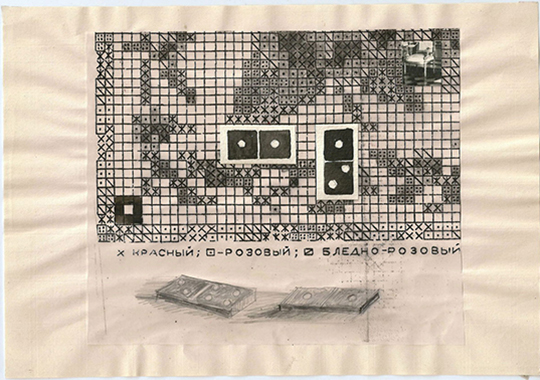 × КРАСНЫЙ; ⊡-РОЗОВЫЙ; ⧄ БЛЕДНО-РОЗОВЫЙ